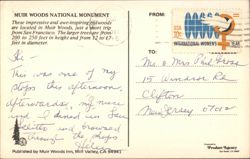 MUIR WOODS NATIONAL MONUMENT
These impressive and awe-inspiring redwoods
are located in Muir Woods, just a short trip
from San Francisco. The larger trees are from
200 to 250 feet in height and from 12 to 17
feet in diameter.
Hi -
This was one of my
stops this afternoon.
Afterwards, my niece
and I dined in San
and browsed
through the shops
Helen
Published by Muir Woods Inn, Mill Valley, CA 94941
FROM:
TO:
INTERNATIONAL WOMEN'S YEAR
Mr & Mrs Paul
15 Windsor Rd.
Clifton
New Jersey 07012